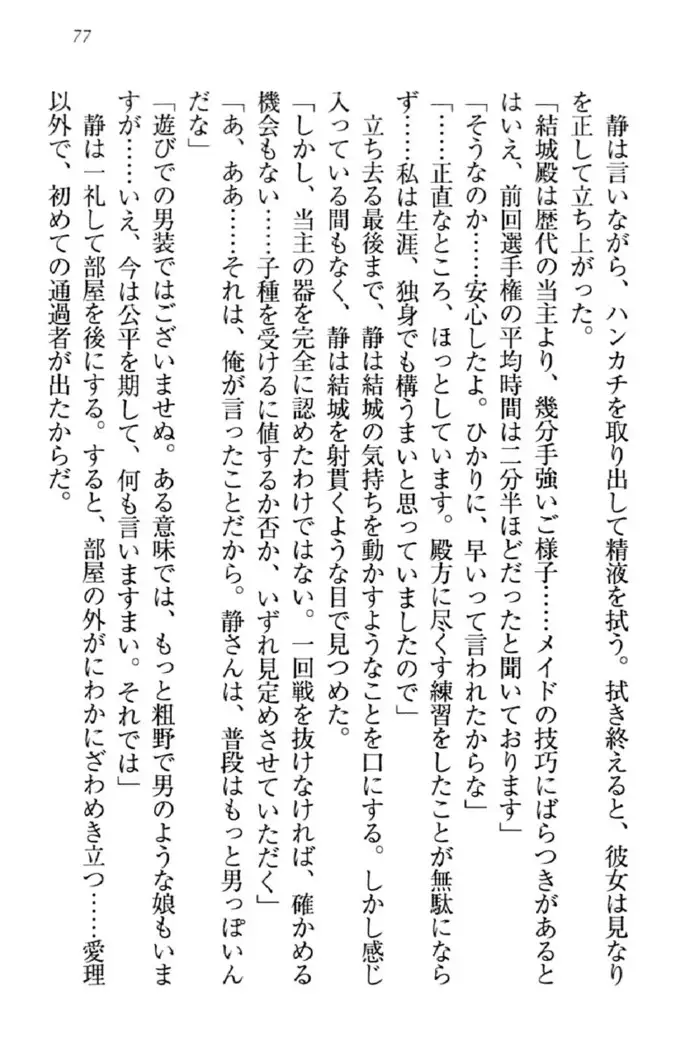 77
静は言いながら、ハンカチを取り出して精液を拭う。拭き終えると、彼女は見なり
を正して立ち上がった。
「結城殿は歴代の当主より、幾分手強いご様子……メイドの技巧にばらつきがあると
はいえ、前回選手権の平均時間は二分半ほどだったと聞いております」
「そうなのか……安心したよ。ひかりに、早いって言われたからな」
「……正直なところ、ほっとしています。殿方に尽くす練習をしたことが無駄になら
ず……私は生涯、独身でも構うまいと思っていましたので」
立ち去る最後まで、静は結城の気持ちを動かすようなことを口にする。しかし感じ
入っている間もなく、静は結城を射貫くような目で見つめた。
「しかし、当主の器を完全に認めたわけではない。一回戦を抜けなければ、確かめる
機会もない……子種を受けるに値するか否か、いずれ見定めさせていただく」
「あ、ああ……それは、俺が言ったことだから。静さんは、普段はもっと男っぽいん
だな」
「遊びでの男装ではございませぬ。ある意味では、もっと粗野で男のような娘もいま
すが……いえ、今は公平を期して、何も言いますまい。それでは」
静は一礼して部屋を後にする。すると、部屋の外がにわかにざわめき立つ……愛理
以外で、初めての通過者が出たからだ。